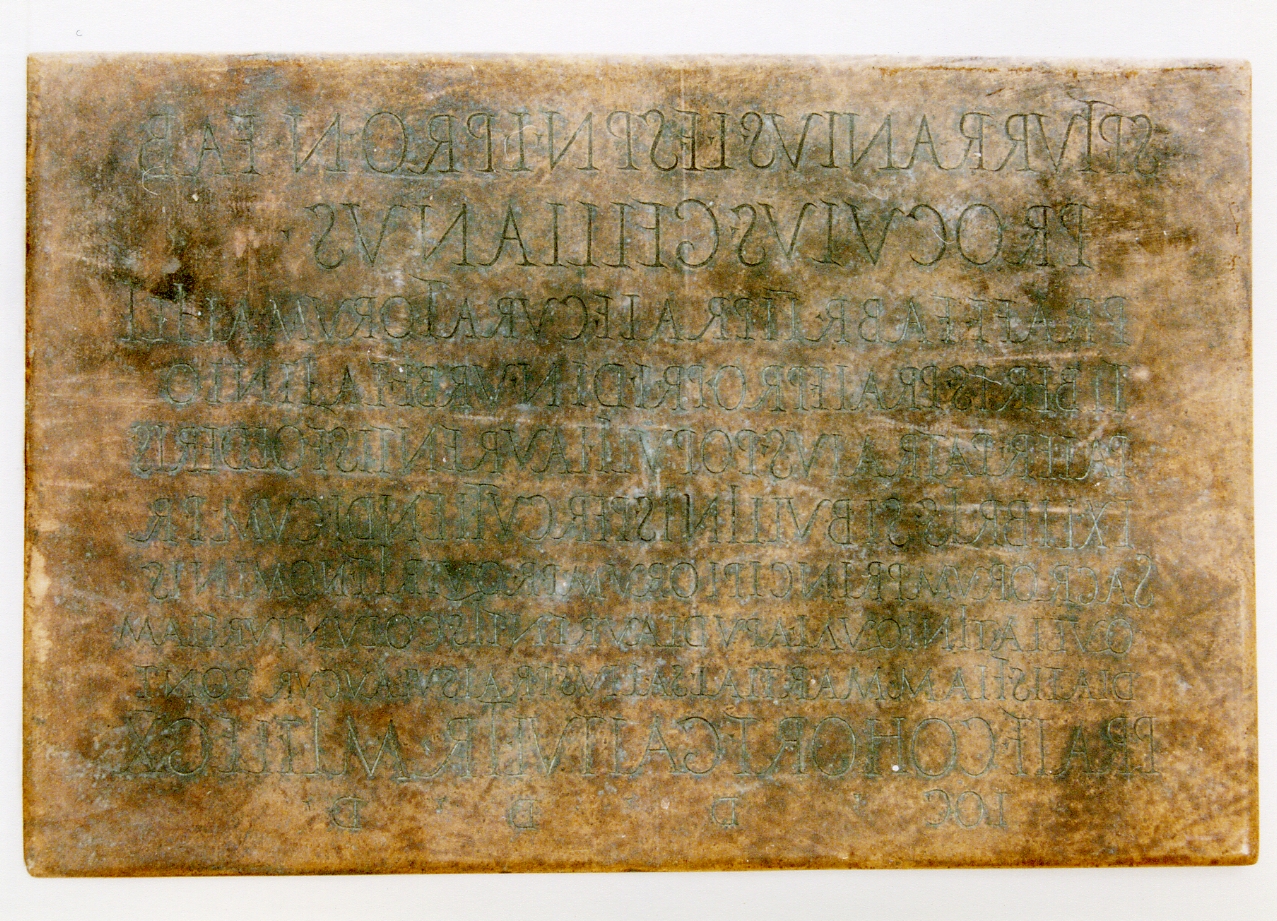 SP·TVRRANIVS·L·F·SP·N·L·PRON·FAB
PROCVLVS·GELLIANVS
PRAEF·FABR·II·PRAIF·CVRATORVM·ALVEI
TIBERIS·PRAIF·PRO·PR·I·D·IN·VRBE·LAVINIO
PATER·PATRATVS·POPVLI·LAVRENTIS·FOEDERIS
EX·LIBRIS·SIBVLLINIS·PERCVTIENDI·CVM·P·R
SACRORVM·PRINCIPIORVM·P·R·QVIRIT·NOMINIS
QVE·LATINI·QVAI·APVD·LAVRENTIS·COLVNTVR·FLAM
DIALIS·FLAM·MARTIAL·SALIVS·PRAISVL·AVGVR·PONT
PRAIF·COHORT·GAITVL·TR·MIL·LEG·X
LOC·D·D·D